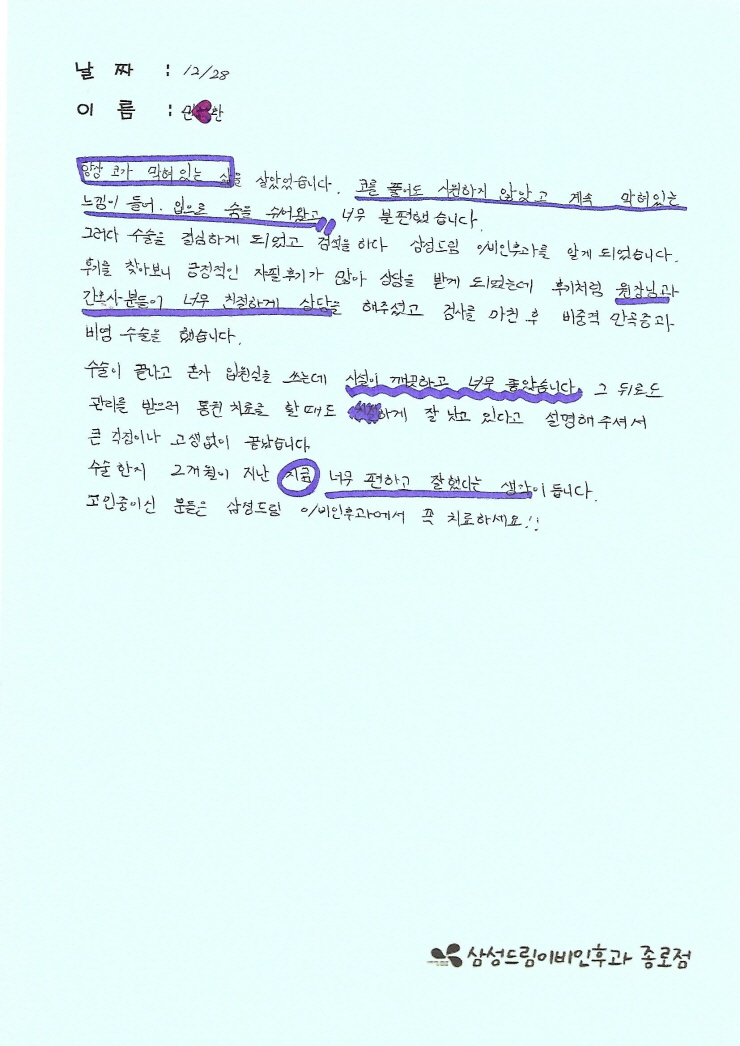 날 짜 : 12/28
이 름 : 민 한
항상 코가 막혀있는 삶을 살았었습니다. 코를 풀어도 시원하지 않았고 계속 막혀있는
느낌이 들어. 입으로 숨을 쉬어왔고 너무 불편했습니다.
그러다 수술을 결심하게 되었고 검색을 하다 삼성드림 이비인후과를 알게 되었습니다.
후기를 찾아보니 긍정적인 자필후기가 많아 상담을 받게 되었는데 후기처럼 원장님과
간호사분들이 너무 친절하게 상담을 해주셨고 검사를 마친 후 비중격 만곡증과
비염 수술을 했습니다.
수술이 끝나고 혼자 입원실을 쓰는데 시설이 깨끗하고 너무 좋았습니다. 그 뒤로도
관리를 받으러 통원 치료를 할 때도 하게 잘 낫고 있다고 설명해주셔서
큰 걱정이나 고생없이 끝났습니다.
수술 한지 2개월이 지난 지금 너무 편하고 잘했다는 생각이 듭니다.
고민중이신 분들은 삼성드림 이비인후과에서 꼭 치료하세요!!
삼성드림이비인후과 종로점